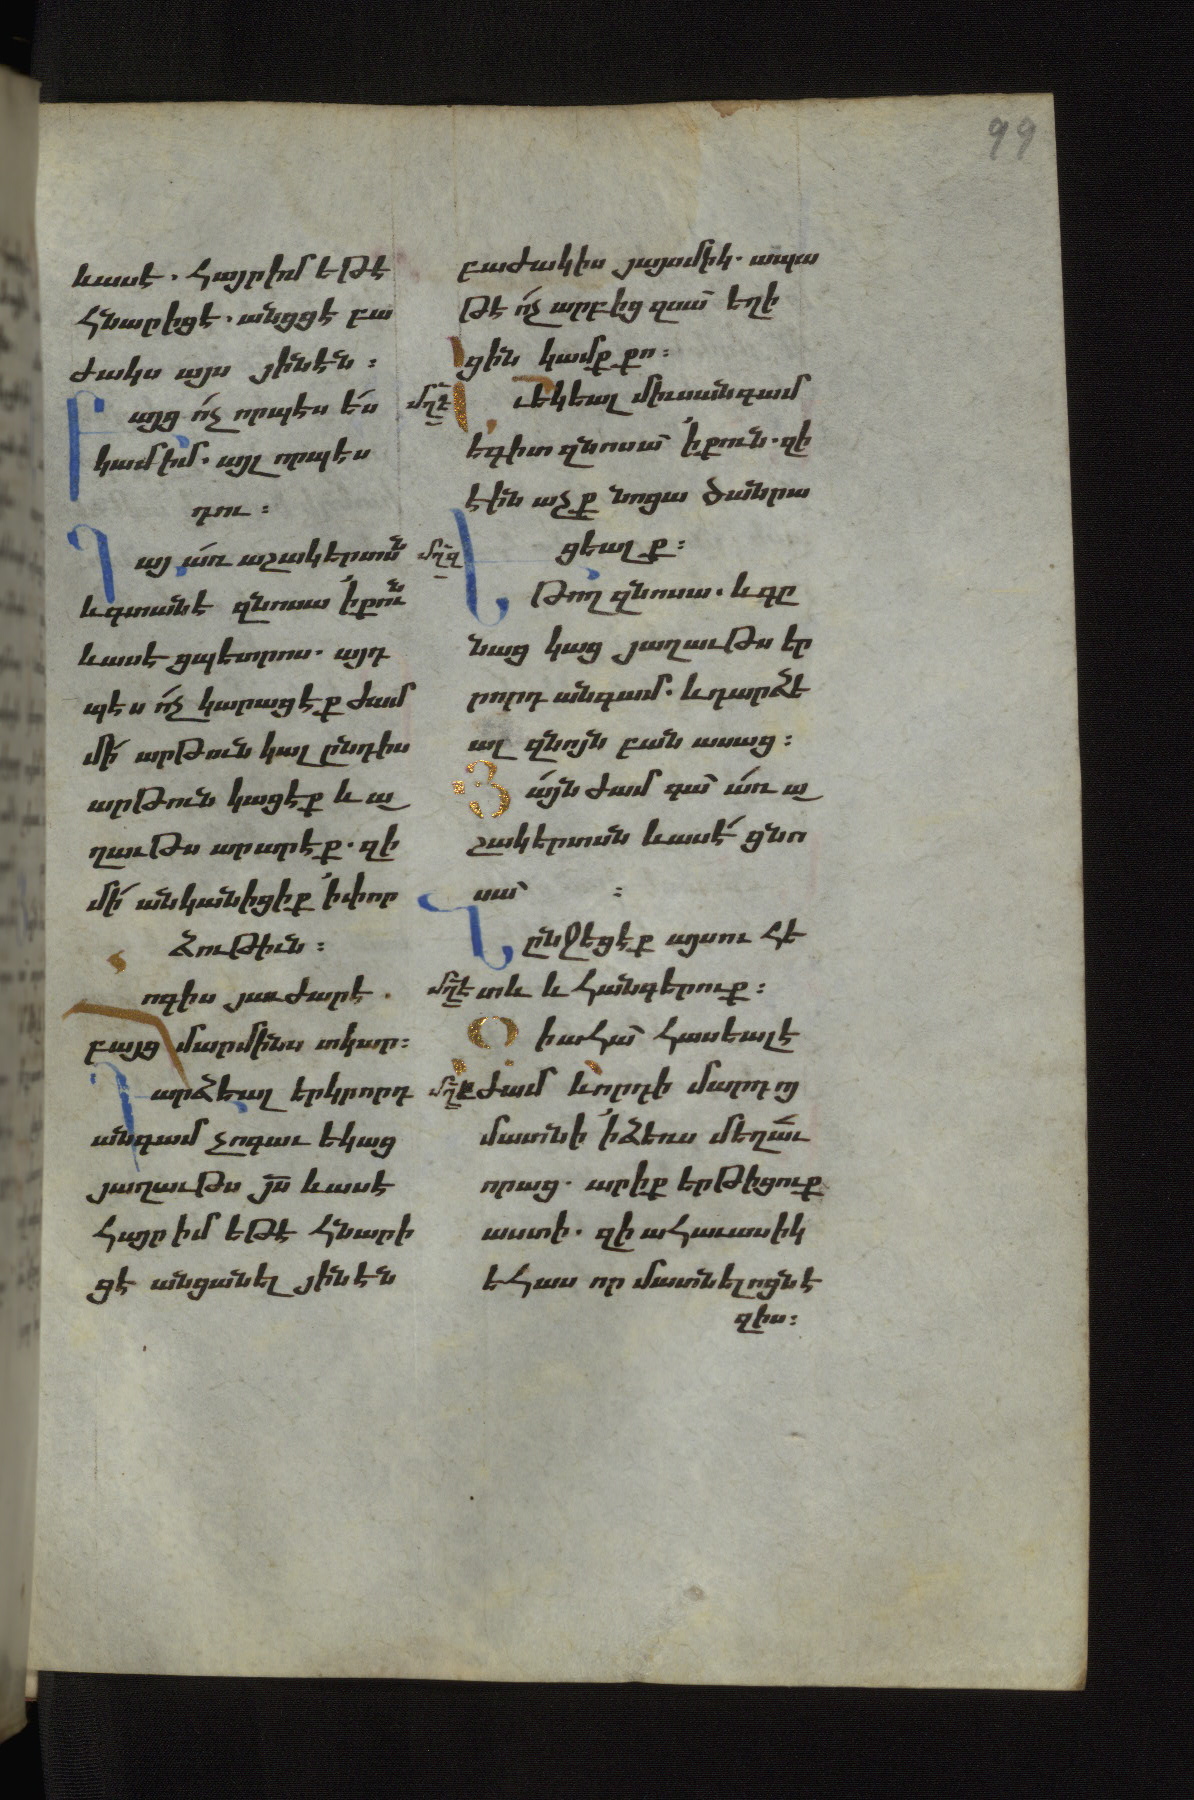 99
և ասէ. Հայր իմ եթէ
հնար իցէ. անցցէ բա
ժակս այս յինէն։
Բայց ո՛չ որպէս ես
կամիմ. այլ որպէս
դու։
Գայ առ աշակերտսն
և գտանէ զնոսա ՛ի քուն
և ասէ ցպետրոս. այդ
պէս ո՛չ կարացէք ժամ
մի արթուն կալ ընդիս
արթուն կացէք և ա
ղաւթս արարէք. զի
մի՛ անկանիցիք ՛ի փոր
ձութիւն։
ոգիս յաւժարէ.
բայց մարմինս տկար։
Դարձեալ երկրորդ
անգամ չոգաւ եկաց
յաղաւթս յս և ասէ
Հայր իմ եթէ հնար ի
ցէ անցանել յինէն
բաժակիս յայսմիկ. ապա
թէ ո՛չ արբից զսա՝ եղի
ցին կամք քո։
մղե
Եւ եկեալ միւսանգամ
եգիտ զնոսա՝ ՛ի քուն. զի
էին աչք նոցա ծանրա
ցեալք։
մղզ
Եթող զնոսա. և գը
նաց կաց յաղաւթս եր
րորդ անգամ. և դարձե
ալ զնոյն բան ասաց։
Յայնժամ գա՝ առ ա
շակերտսն և ասէ ցնո
սա՝ ։
Ննջեցէք այսուհե
մղէ
տև և հանգերուք։
Զի ահա՝ հասեալ է
մղը
ժամ և որդի մարդոյ
մատնի ՛ի ձեռս մեղաւ
որաց. արիք երթիցուք
աստի. զի ահաւասիկ
եհաս որ մատնելոցն է
զիս։